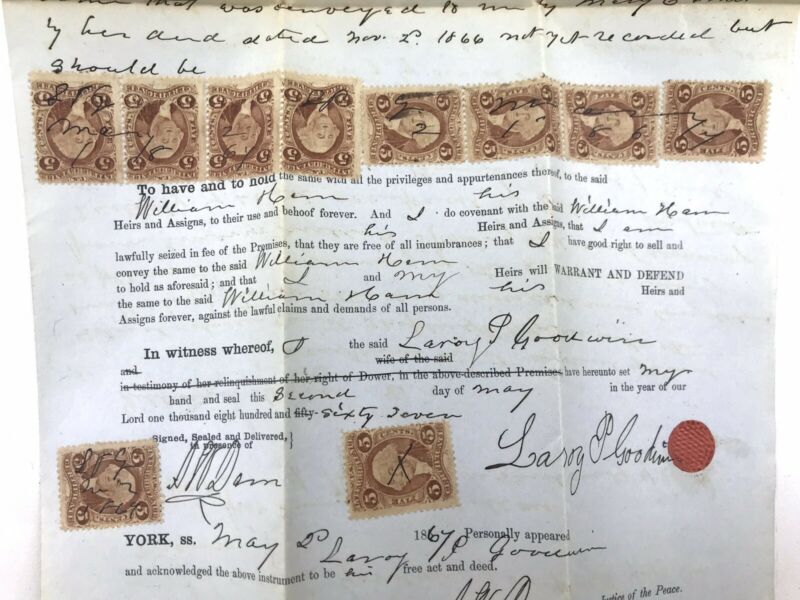 was conveyed to me by Mary
by her deed dated Nov. 2d. 1866 not yet recorded but
should be
To have and to hold the same with all the privileges and appurtenances thereof, to the said
William Ham his
Heirs and Assigns, to their use and behoof forever. And I do covenant with the said William Ham
his Heirs and Assigns, that I am
lawfully seized in fee of the Premises, that they are free of all incumbrances; that I have good right to sell and
convey the same to the said William Ham
to hold as aforesaid; and that I and my Heirs will WARRANT AND DEFEND
the same to the said William Ham his Heirs and
Assigns forever, against the lawful claims and demands of all persons.
In witness whereof, I the said Laroy P Goodwin
and wife of the said
in testimony of her relinquishment of her right of Dower, in the above-described Premises have hereunto set my
hand and seal this Second day of May in the year of our
Lord one thousand eight hundred and fifty- Sixty Seven
Signed, Sealed and Delivered, }
in presence of
Laroy P. Goodwin
YORK, ss. May 2d 1867 Personally appeared
Laroy P Goodwin
and acknowledged the above instrument to be his free act and deed.
Justice of the Peace.